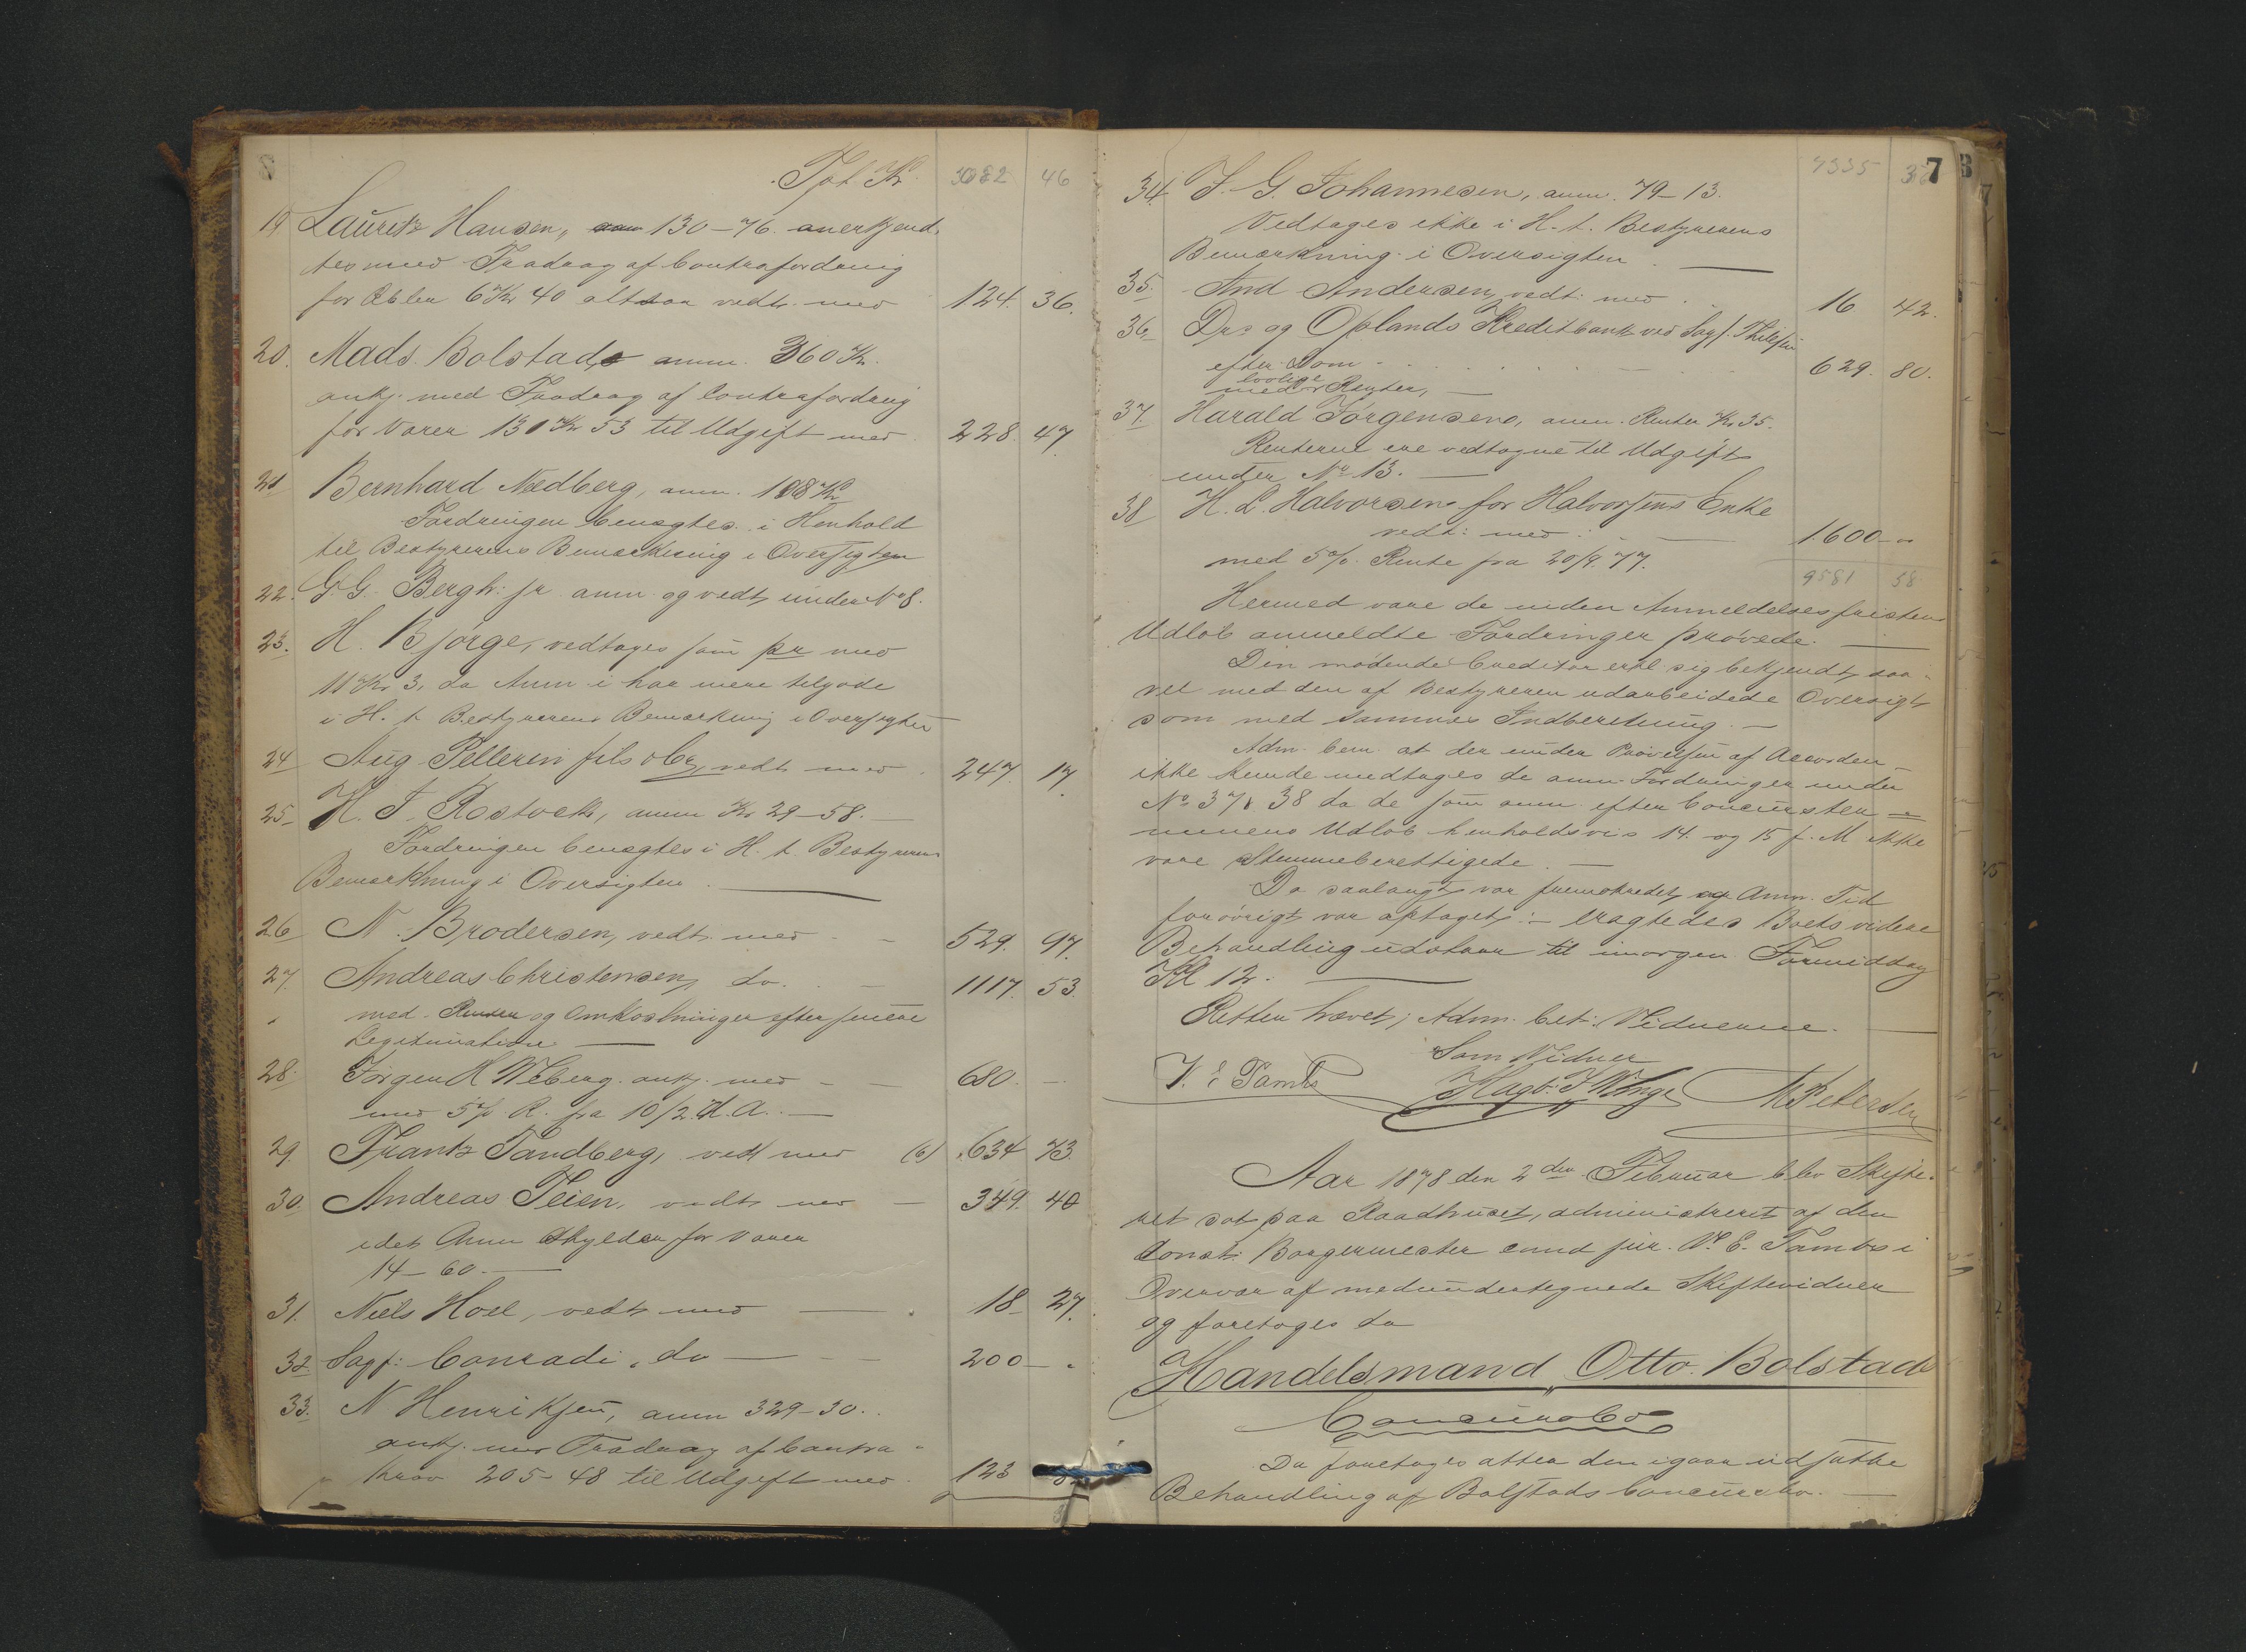 Tpt. Kr. 3082 46
19. Lauritz Hansen, anm 130-76. anerkjend-
tes med Fradrag af Contrafordring
for Æbler 6 Kr 40 altsaa vedt. med 124. 36.
20. Mads Bolstad, anm. 360 Kr.
ankj. med Fradrag af Contrafordring
for Varer 131 Kr 53 til Udgift med 228. 47.
21 Bernhard Nedberg, anm. 108 Kr
Fordringen benegtes i Henhold
til Bestyrerens Bemærkning i Oversigten
22. G. G. Bergh. jr. anm. og vedt. under Nr 8.
23. H. Bjørge, vedtages som pr med
11 Kr 3, da Anm. i har mere tilgode
i H. t. Bestyrerens Bemærkning i Oversigten
24 Aug Pellerin fils & Co, vedt. med 247. 17.
25. H. J. Rostock, anm Kr 29-58.
Fordringen benegtes i H. t. Bestyrerens
Bemærkning i Oversigten.
26 N. Brodersen, vedt. med 529. 97.
27. Andreas Christensen, do. 1117. 53.
med Renter og Omkostninger efter senere
Legitimation
28. Jørgen H Wiberg. ankj. med 680. -
med 5% R. fra 10/2 d. A.
29. Frantz Tandberg, vedt med (6) 634 73.
30. Andreas Teien, vedt. med 349. 40
idet Anm skylder for Varer
14-60.
31. Niels Hoel, vedt. med 18 27.
32. Sagf: Conradi, do 200 - "
33. N Henriksen, anm 329-30.
ankj. med Fradrag af Contra-
krav 205-48 til Udgift med 123
7335 7
34. J. G. Johannesen, anm. 79-13.
Vedtages ikke i H. t. Bestyrerens
Bemærkning i Oversigten.
35. And Andersen, vedt: med 16 42.
36. Drs og Oplands Kreditbank ved Sagf.
efter Dom 629. 80.
lovlige
med Renter,
37. Harald Jørgensen, anm. Renter Kr 35.
Renterne ere vedtagne til Udgift
under Nr 13.
38 H. L. Halvorsen for Halvorsens Enke
vedt: med 1600 - "
med 5% Rente fra 20/9. 77.
9581 58
Hermed vare de inden Anmeldelsesfristens
Udløb anmeldte Fordringer prøvede.
Den mødende Creditor erkl. sig bekjendt saa-
vel med den af Bestyreren udarbeidede Oversigt
som med sammes Indberetning.
Adm. bem. at der under Prøvelsen af Accorden
ikke kunde medtages de anm. Fordringer under
No 37 & 38 da de som anm. efter Concurster-
minens Udløb henholdsvis 14. og 15 f. M ikke
vare Stemmeberettigede.
Da saalangt var fremskredet og Anm. Tid
forøvrigt var optaget: - eragtedes Boets videre
Behandling udstaar til imorgen Formiddag
Kl 12.
Retten hævet; Adm. bet: Vidnerne.
Som Vidner
V. E. Tambs Hagb: J Winge M Petersen
Aar 1878 den 2den Februar blev Skifte-
ret sat paa Raadhuset, administreret af den
const: Borgermester cand jur. V. E. Tambs i
Overvær af medundertegnede Skiftevidner
og foretoges da
Handelsmand Otto Bolstads
Concursbo
Da foretoges atter den igaar udsatte
Behandling af Bolstads Concursbo.